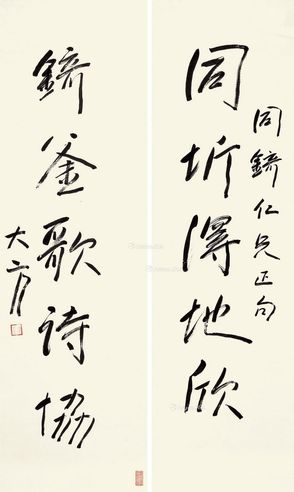 同錡仁兄正句
同圻得地欣
錡釜歌詩協
大方